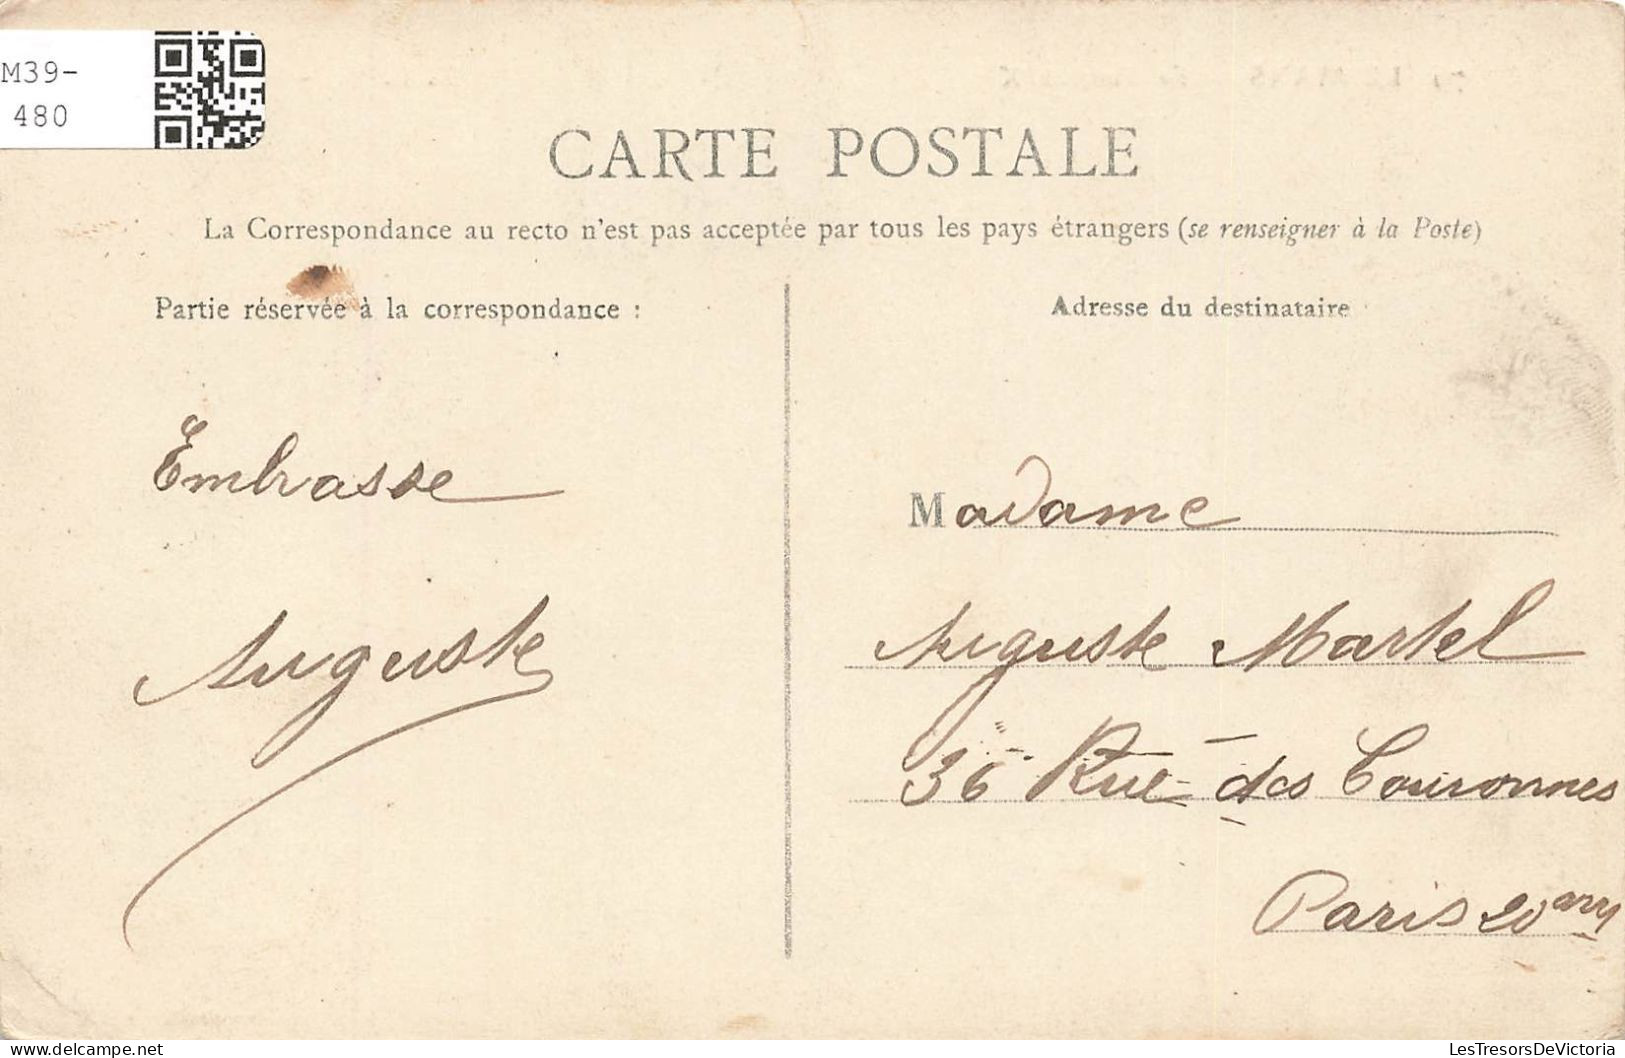 M39-
480
CARTE POSTALE
La Correspondance au recto n'est pas acceptée par tous les pays étrangers (se renseigner à la Poste)
Partie réservée à la correspondance :
Embrasse
Auguste
Adresse du destinataire
Madame
Auguste Martel
36 Rue des Couronnes
Paris 20 arr
LesTresorsDeVictoria
delcampe.net